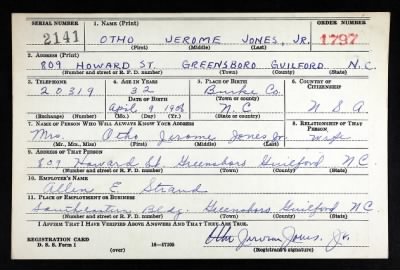 SERIAL NUMBER 1. NAME (Print) ORDER NUMBER
2141 OTHO JEROME JONES, JR. 1797
(First) (Middle) (Last)
2. ADDRESS (Print)
809 HOWARD ST. GREENSBORO GUILFORD N.C.
(Number and street or R. F. D. number) (Town) (County) (State)
3. TELEPHONE 4. AGE IN YEARS 5. PLACE OF BIRTH 6. COUNTRY OF CITIZENSHIP
20319 32 Burke Co.
DATE OF BIRTH (Town or county)
April 9 1908 N.C. U.S.A
(Exchange) (Number) (Mo.) (Day) (Yr.) (State or country)
7. NAME OF PERSON WHO WILL ALWAYS KNOW YOUR ADDRESS 8. RELATIONSHIP OF THAT PERSON
Mrs. Otho Jerome Jones Jr. Wife
(Mr., Mrs., Miss) (First) (Middle) (Last)
9. ADDRESS OF THAT PERSON
809 Howard St. Greensboro Guilford N.C.
(Number and street or R. F. D. number) (Town) (County) (State)
10. EMPLOYER'S NAME
Allen E. Strand
11. PLACE OF EMPLOYMENT OR BUSINESS
Southeastern Bldg. Greensboro Guilford N.C.
(Number and street or R. F. D. number) (Town) (County) (State)
I AFFIRM THAT I HAVE VERIFIED ABOVE ANSWERS AND THAT THEY ARE TRUE.
REGISTRATION CARD Otho Jerome Jones, Jr.
D. S. S. Form 1 (over) 16—17105 (Registrant's signature)